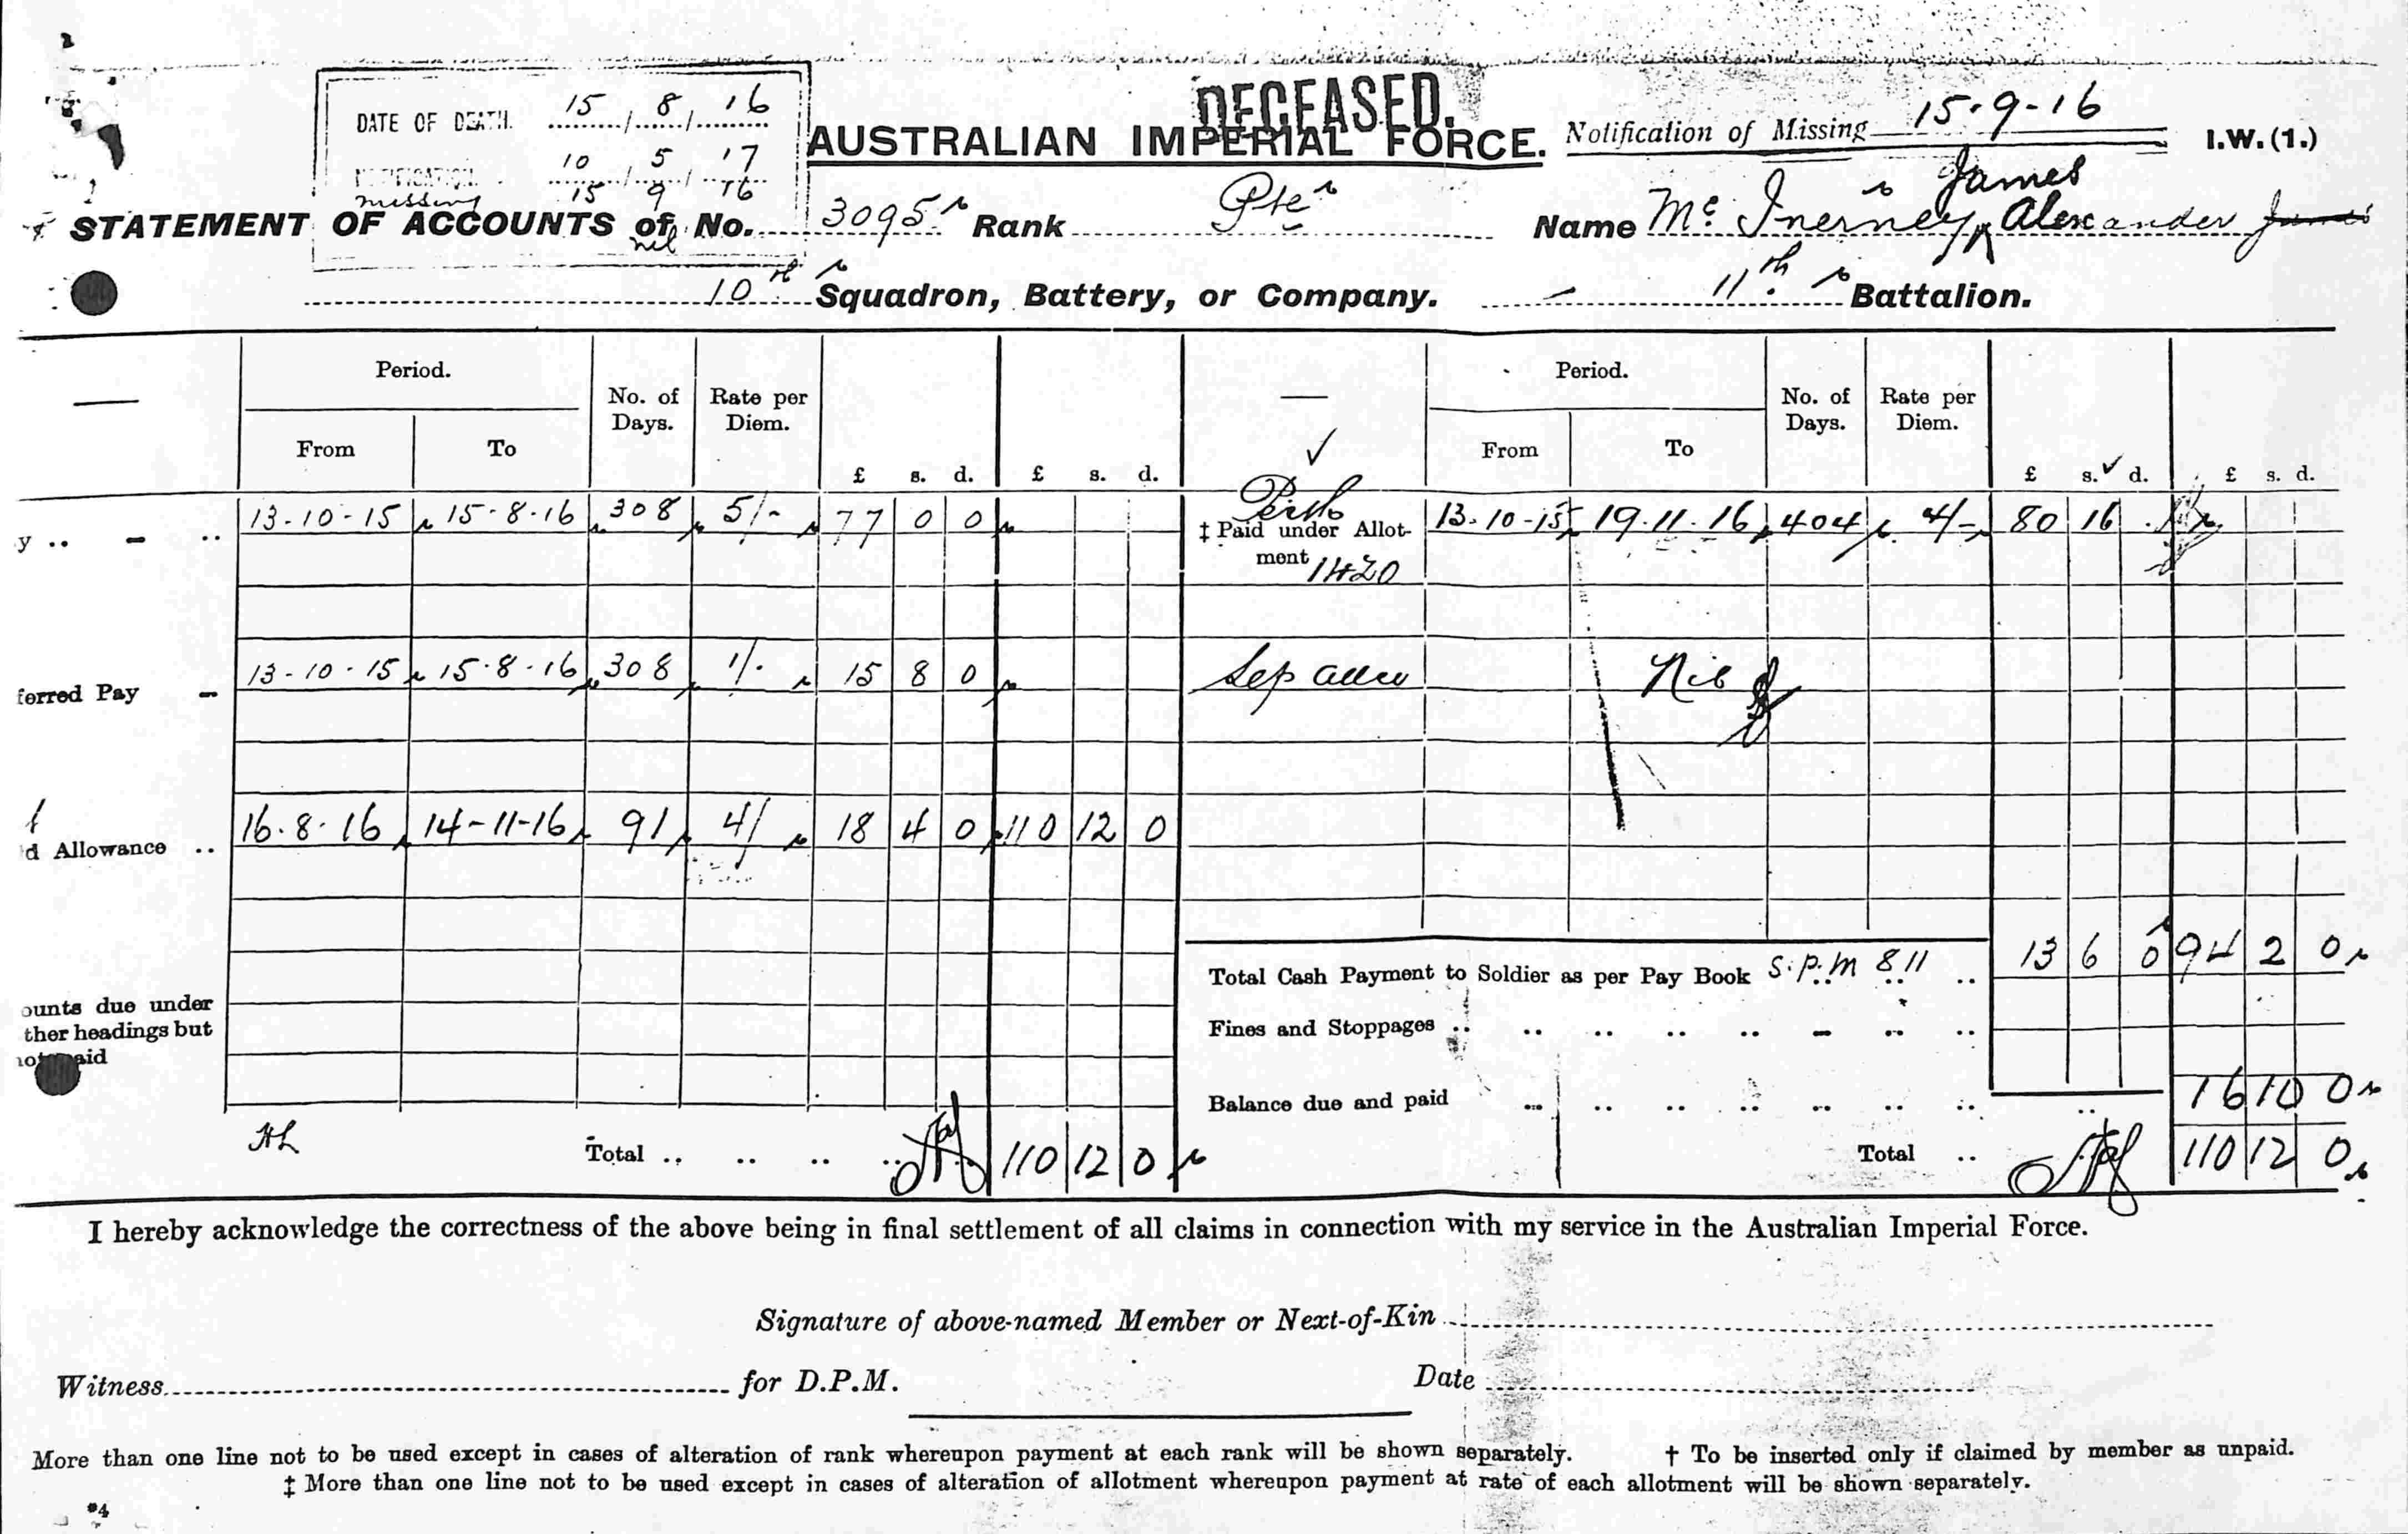 DECEASED.
DATE OF DEATH. 15 / 8 / 16
NOTIFICATION. 10 / 5 / 17
missing 15 9 16
nil
AUSTRALIAN IMPERIAL FORCE. Notification of Missing 15-9-16 I.W. (1.)
STATEMENT OF ACCOUNTS of No. 3095 Rank Pte Name McInerney, James Alexander James
10th Squadron, Battery, or Company. 11th. Battalion.
Period. No. of Days. Rate per Diem. Period. No. of Days. Rate per Diem.
From To £ s. d. £ s. d. From To £ s. d. £ s. d.
y .. 13-10-15 15-8-16 308 5/- 77 0 0 Perth ‡ Paid under Allotment 1420 13-10-15 19.11.16 404 4/- 80 16
ferred Pay 13-10-15 15-8-16 308 1/- 15 8 0 Sep allce Nil
d Allowance .. 16.8.16 14-11-16 91 4/ 18 4 0 110 12 0
Total Cash Payment to Soldier as per Pay Book S.P.M 811 .. 13 6 0 94 2 0
ounts due under
ther headings but
not paid
Fines and Stoppages ..
Balance due and paid 16 10 0
HL Total .. 110 12 0 Total .. 110 12 0
I hereby acknowledge the correctness of the above being in final settlement of all claims in connection with my service in the Australian Imperial Force.
Signature of above-named Member or Next-of-Kin
Witness for D.P.M. Date
More than one line not to be used except in cases of alteration of rank whereupon payment at each rank will be shown separately. † To be inserted only if claimed by member as unpaid.
‡ More than one line not to be used except in cases of alteration of allotment whereupon payment at rate of each allotment will be shown separately.
*4